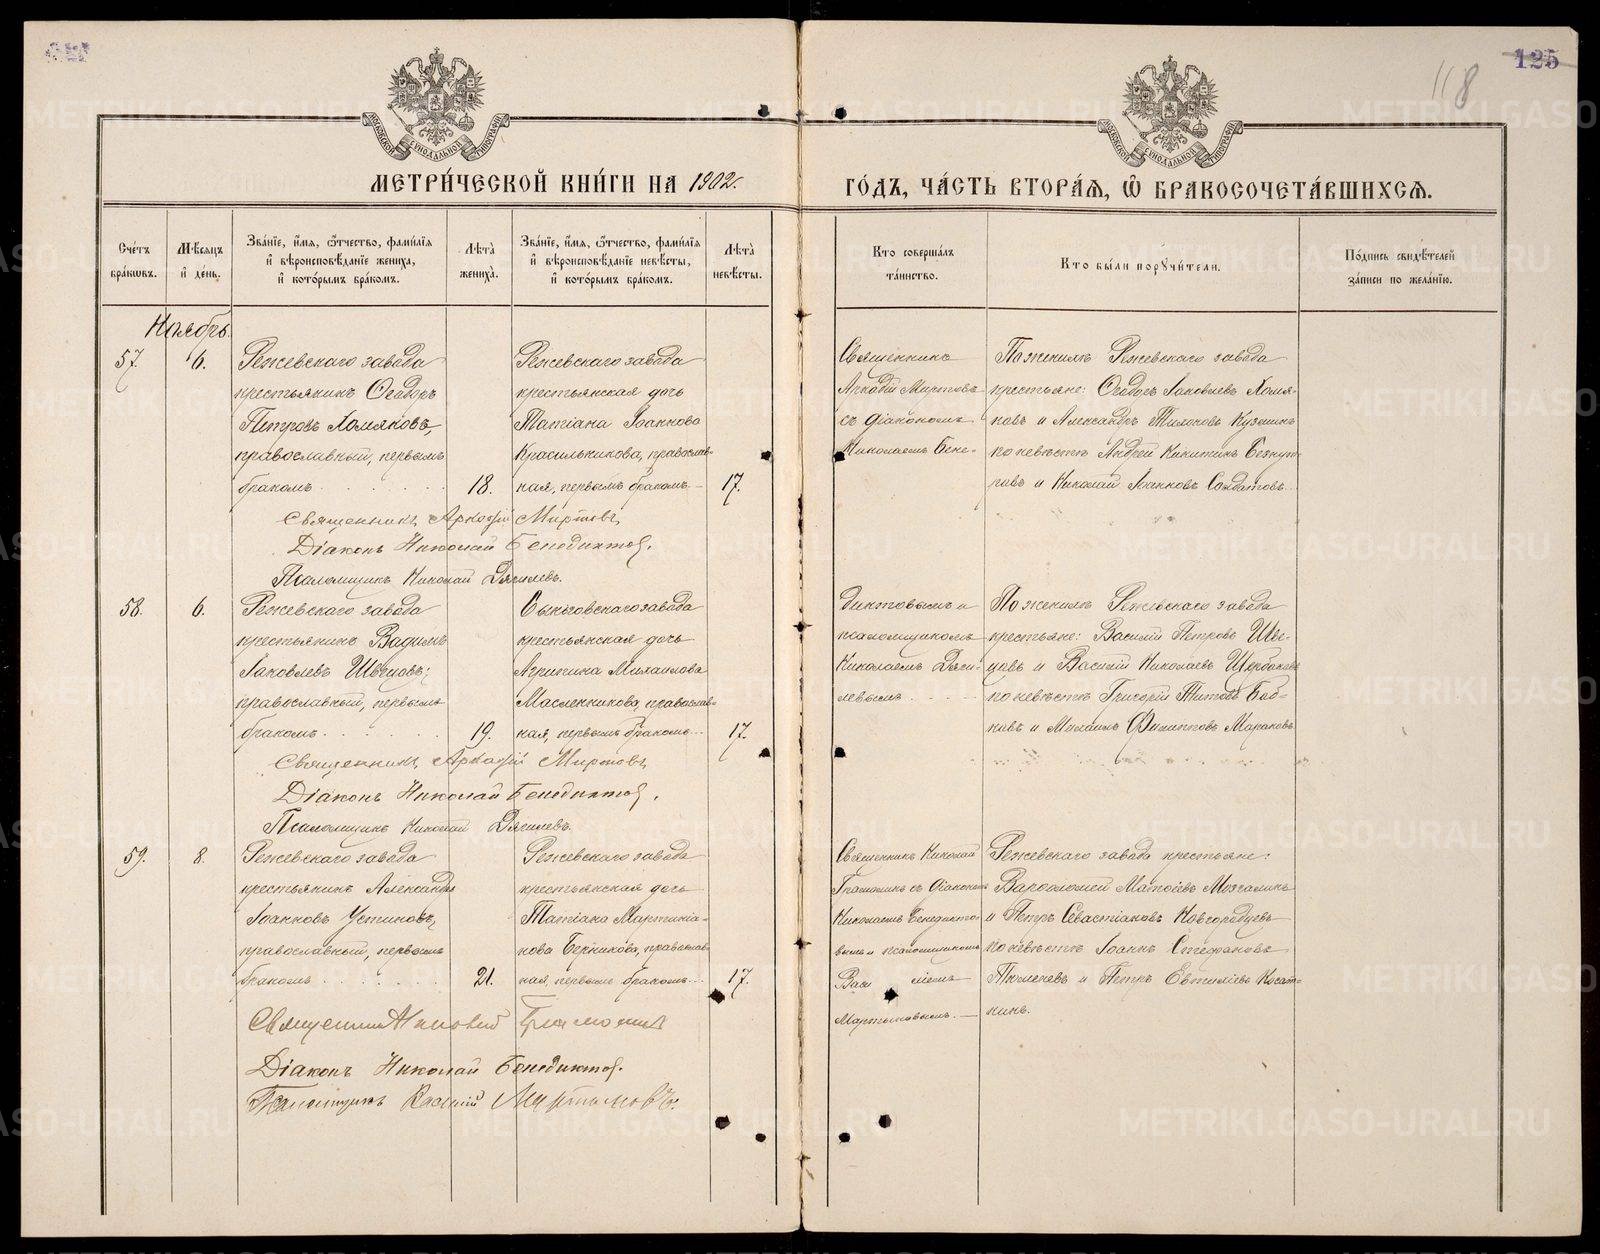 125
118
МОСКОВСКОЙ СѴНОДАЛЬНОЙ ТИПОГРАФІИ
МОСКОВСКОЙ СѴНОДАЛЬНОЙ ТИПОГРАФІИ
МЕТРИ́ЧЕСКОЙ КНИ́ГИ НА 1902 г.
ГО́ДЪ, ЧА́СТЬ ВТОРА́Я, Ѽ БРАКОСОЧЕТА́ВШИХСѦ.
Сче́тъ бра́кѡвъ.
Мѣ́сяцъ и҆ де́нь.
Зва́нїе, и҆́мя, ѻ҆́тчество, фами́лїя и҆ вѣроисповѣ́данїе жениха̀, и҆ кото́рымъ бра́комъ.
Лѣ́та жениха̀.
Зва́нїе, и҆́мя, ѻ҆́тчество, фами́лїя и҆ вѣроисповѣ́данїе невѣ́сты, и҆ кото́рымъ бра́комъ.
Лѣ́та невѣ́сты.
Кто соверша́лъ та́инство.
Кто бы́ли порꙋчи́тели.
По́дпись свидѣ́телей за́писи по жела́нїю.
Ноябрь.
57.
6.
Режевскаго завода
крестьянинъ Ѳеодоръ
Петровъ Хомяковъ,
православный, первымъ
бракомъ
18.
Режевскаго завода
крестьянская дочь
Татіана Іоаннова
Красильникова, православ-
ная, первымъ бракомъ
17.
Священникъ
Аркадій Миртовъ
съ діакономъ
Николаемъ Бене-
По женихѣ Режевскаго завода
крестьяне: Ѳеодоръ Іаковлевъ Хомя-
ковъ и Александръ Тихоновъ Кузьминъ
по невѣстѣ Андрей Никитинъ
и Николай Іоанновъ Солдатовъ
Священникъ Аркадій Миртовъ,
Діаконъ Николай Бенедиктов.
Псаломщикъ Николай Дягилевъ.
58.
6.
Режевскаго завода
крестьянинъ Вадимъ
Іаковлевъ Швецовъ;
православный, первымъ
бракомъ
19.
завода
крестьянская дочь
Агрипина Михаилова
Масленникова, православ-
ная, первымъ бракомъ
17.
диктовымъ и
псаломщикомъ
Николаемъ Дяги-
левымъ
По женихѣ Режевскаго завода
крестьяне: Василій Петровъ Шве-
цовъ и Василій Николаевъ Щербаковъ
по невѣстѣ Григорій Титовъ
и Михаилъ Филипповъ
Священникъ Аркадій Миртовъ,
Діаконъ Николай Бенедиктов.
Псаломщикъ Николай Дягилевъ.
59.
8.
Режевскаго завода
крестьянинъ Александръ
Іоанновъ Устиновъ,
православный, первымъ
бракомъ
21.
Режевскаго завода
крестьянская дочь
Татіана Мартиніа-
нова Берникова, православ-
ная, первымъ бракомъ
17.
Священникъ Николай
съ діакономъ
Николаемъ Бенедикто-
вымъ и псаломщикомъ
Мартыновымъ.
Режевскаго завода крестьяне:
Варфоломей Матвіевъ
и Петръ Севастіановъ Новгородцевъ
по невѣстѣ Іоаннъ Стефановъ
и Петръ Евфиміевъ
Священникъ Николай
Діаконъ Николай Бенедиктов.
Псаломщикъ Василій Мартыновъ.